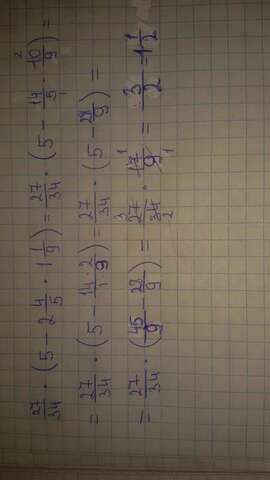 27/34 · (5 − 2 4/5 · 1 1/9) = 27/34 · (5 − 14/5 · 10/9) =
= 27/34 · (5 − 14·2/1·9) = 27/34 · (5 − 28/9) =
= 27/34 · (45/9 − 28/9) = 27/34 · 17/9 = 3/2 = 1 1/2